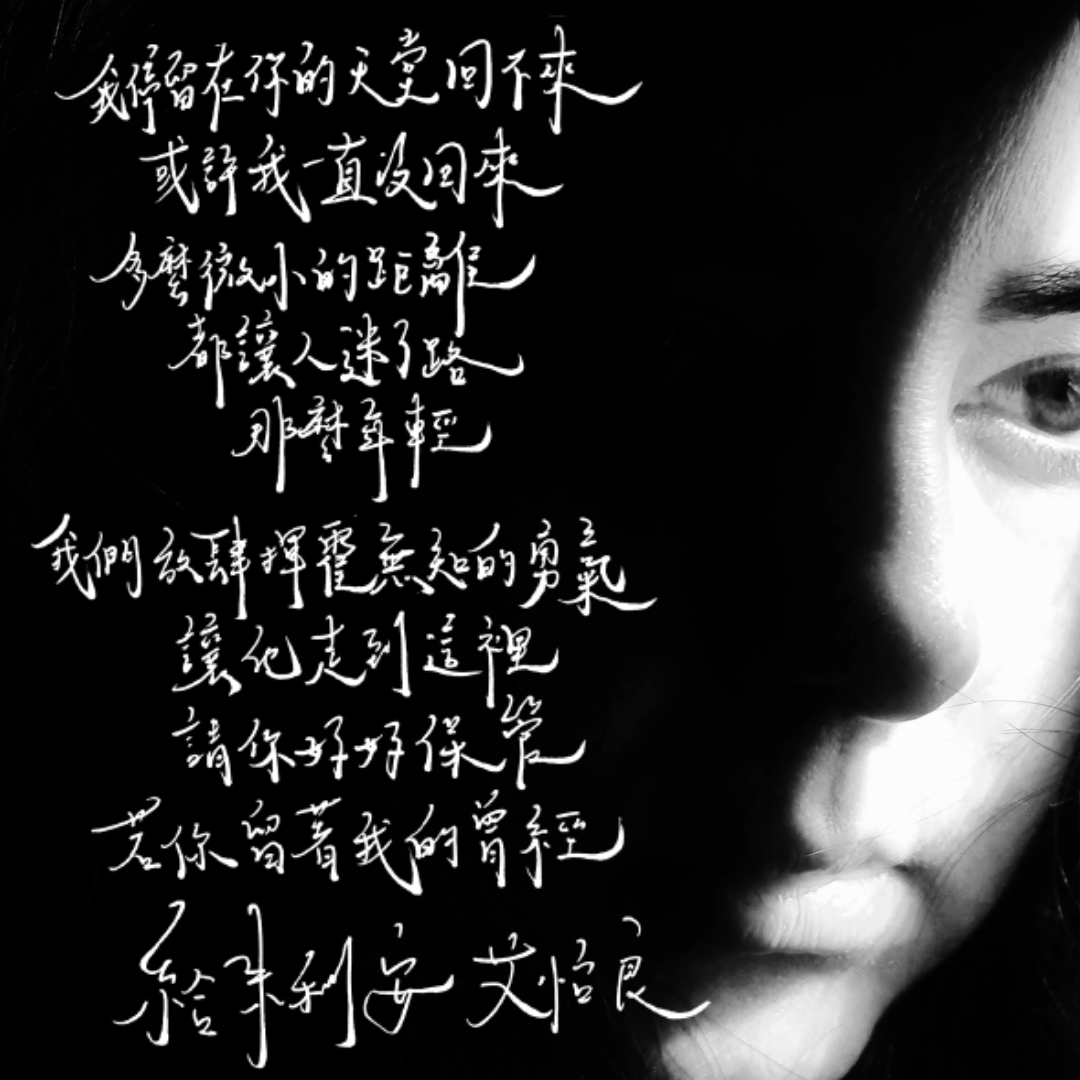 我停留在你的天堂回不來
或許我一直沒回來
多麼微小的距離
都讓人迷了路
那麼年輕
我們放肆揮霍無知的勇氣
讓他走到這裡
請你好好保管
若你留著我的曾經
給朱利安 艾怡良